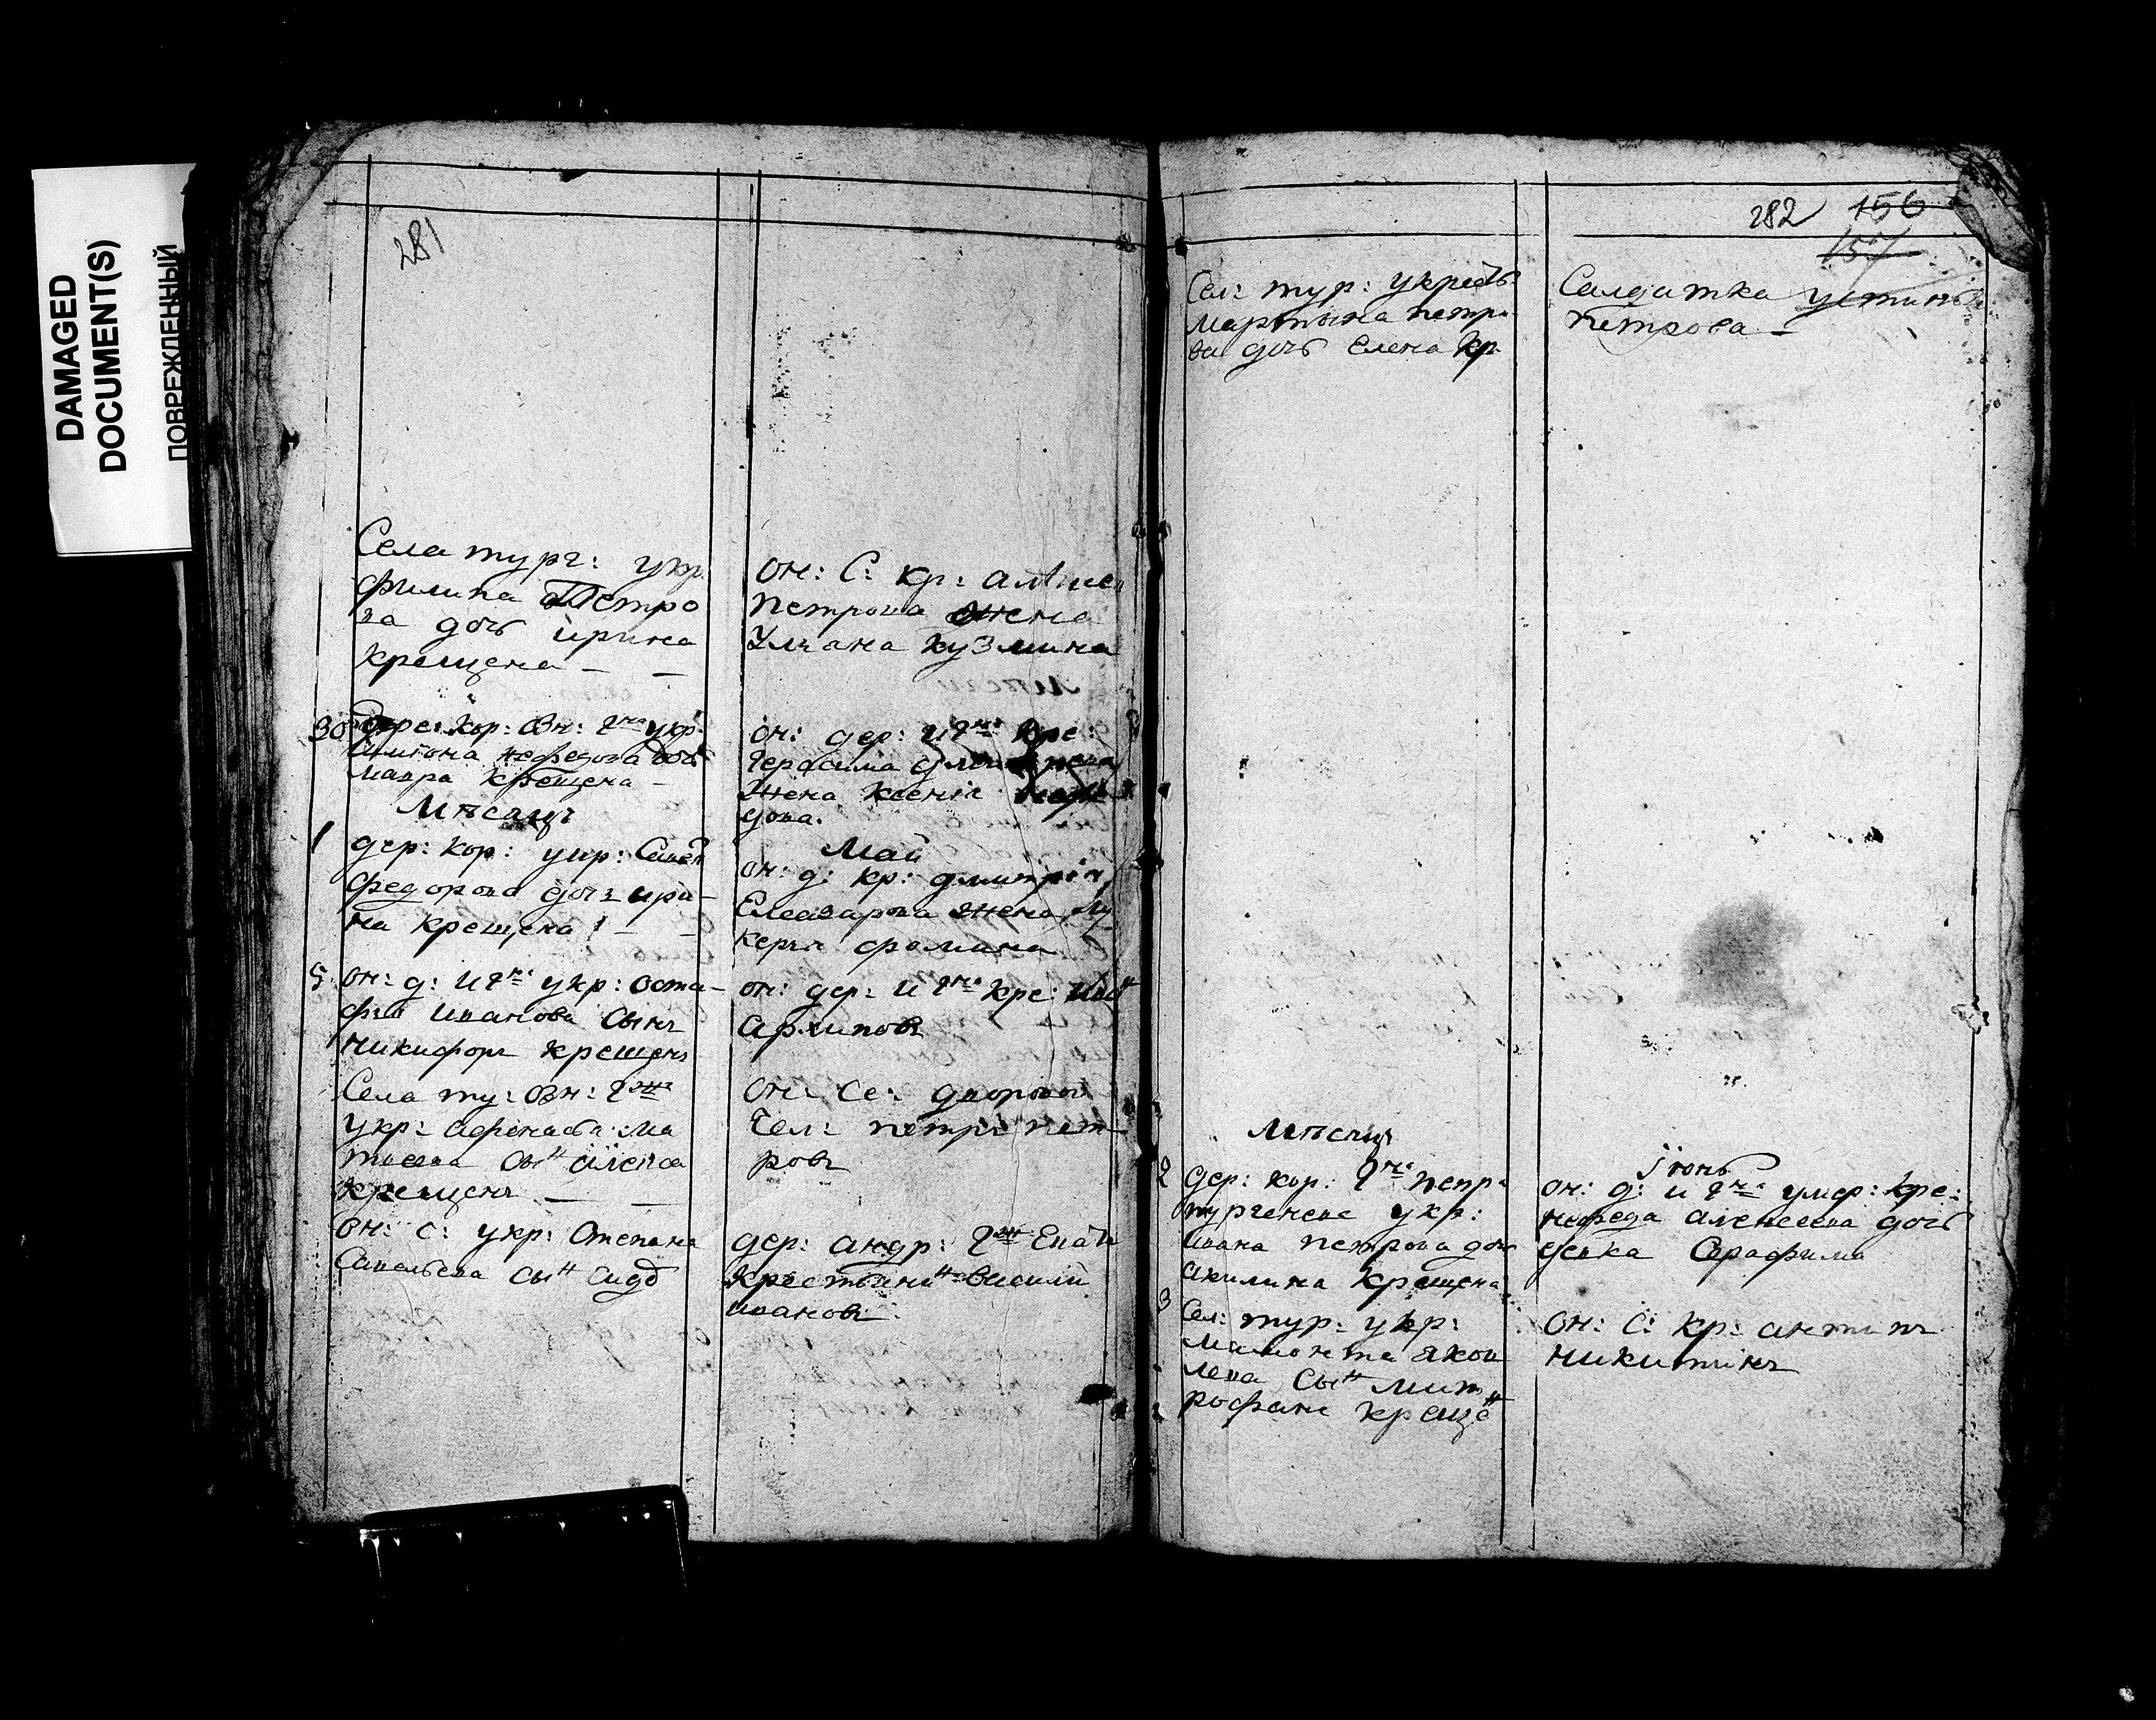 DAMAGED
DOCUMENT(S)
ПОВРЕЖДЕННЫЙ
281
Села тург: укр:
филипа Петро
ва дочь ирина
крещена —
30 дере: кор: вн: гна укр:
нефедова дочь
мавра крещена —
Мѣсяцъ
1 дер: кор: укр:
федорова дочь ири-
на крещена
5 он: д: и гна укр: оста-
фия иванова сынъ
никифоръ крещенъ
Села ту: вн: гжи
укр: афанасья ма
твеева сынъ
крещенъ —
он: с: укр: Степана
Савельева сынъ сидо
он: С: кр: алѣксея
петрова жена
Ульана кузмина
он: дер: и гна кре:
герасима
жена ксения
дова.
Май
он: д: кр: дмитрия
Елеазарова жена лу
керья фомина
он: дер: и гна кре: иванъ
архиповъ
он: се: дворовой
чел: петръ пет-
ровъ
дер: андр: гжи
крестьянинъ василий
ивановъ.
282 156
157
Сел: тур: укр:
мартына петро
ва дочь елена кр:
Салдатка устинья
петрова —
Мѣсяцъ
2 дер: кор: гна петра
тургенева укр:
ивана петрова дочь
акилина крещена
3 Сел: тур: укр:
мамонта яков
лева сынъ мит
рофанъ крещенъ
Iюнь
он: д: и гна умер: кре:
нефеда алексеева дочь
девка Серафима
он: С: кр: антипъ
никитинъ